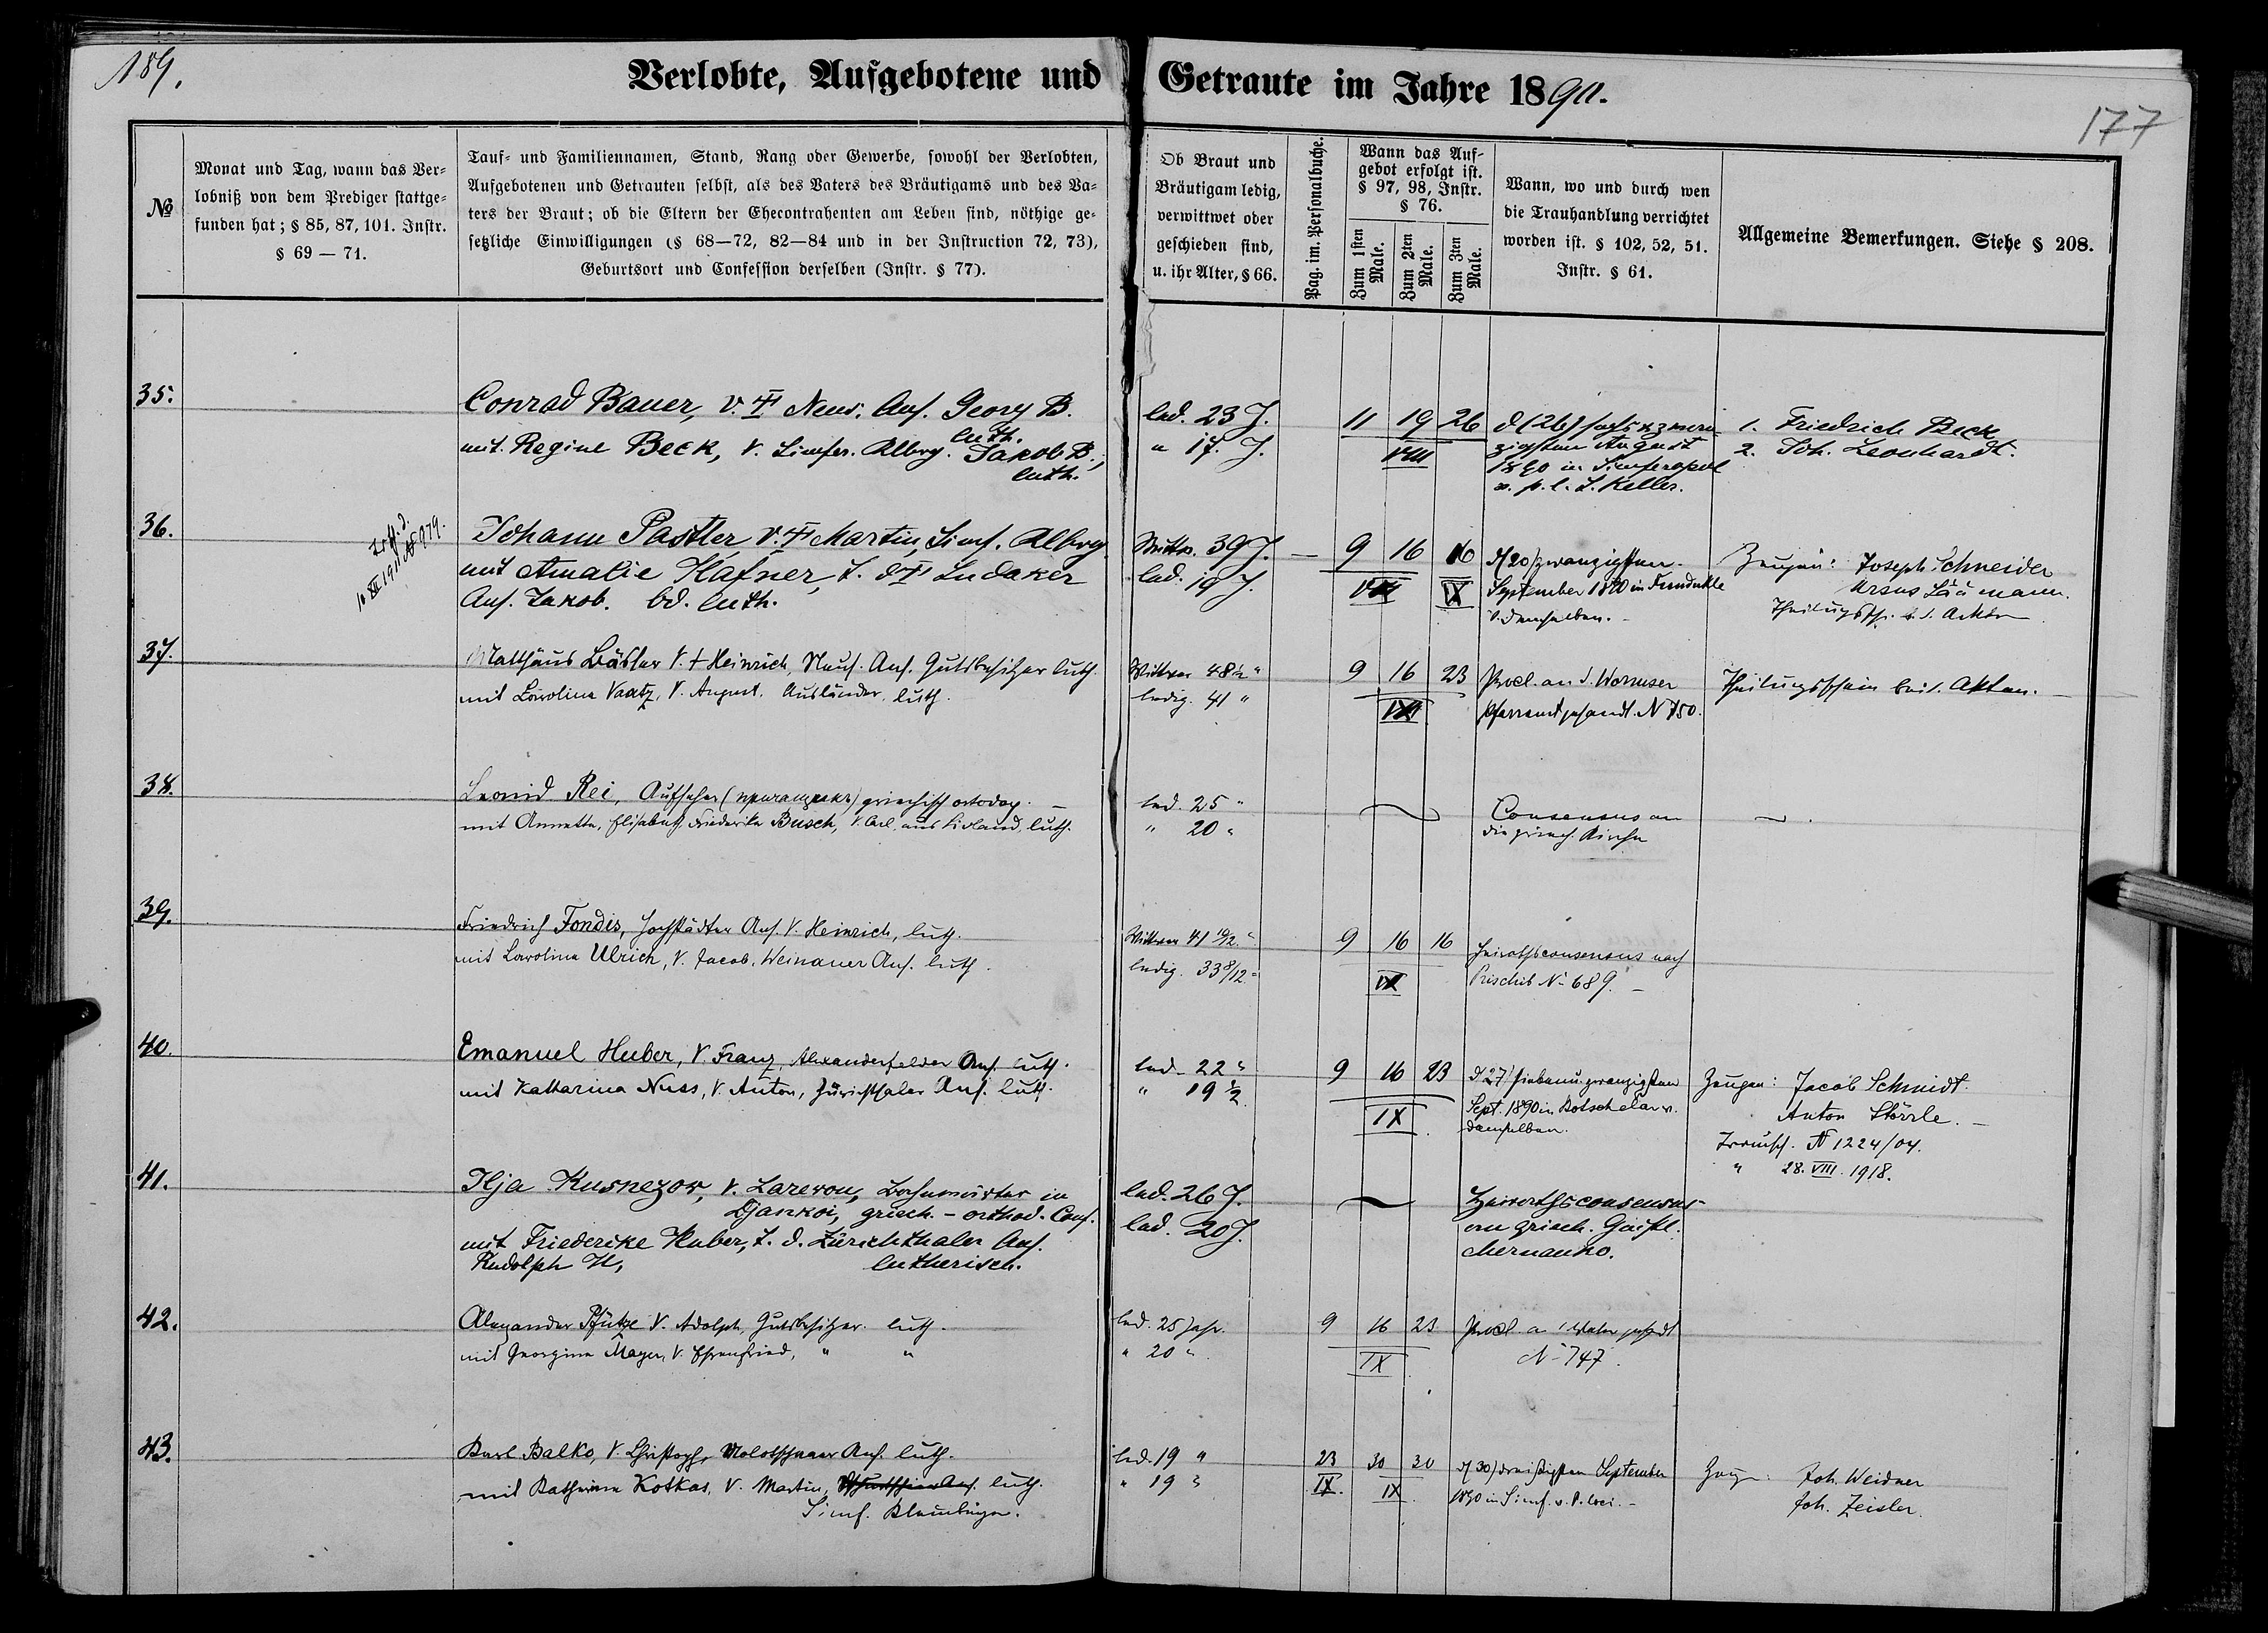 189.
Verlobte, Aufgebotene und Getraute im Jahre 1890.
177
№
Monat und Tag, wann das Ver-
lobniß von dem Prediger stattge-
funden hat; § 85, 87, 101. Instr.
§ 69 — 71.
Tauf- und Familiennamen, Stand, Rang oder Gewerbe, sowohl der Verlobten,
Aufgebotenen und Getrauten selbst, als des Vaters des Bräutigams und des Va-
ters der Braut; ob die Eltern der Ehecontrahenten am Leben sind, nöthige ge-
setzliche Einwilligungen (§ 68—72, 82—84 und in der Instruction 72, 73),
Geburtsort und Confession derselben (Instr. § 77).
Ob Braut und
Bräutigam ledig,
verwittwet oder
geschieden sind,
u. ihr Alter, § 66.
Pag. im. Personalbuche.
Wann das Auf-
gebot erfolgt ist.
§ 97, 98, Instr.
§ 76.
Zum 1sten
Male.
Zum 2ten
Male.
Zum 3ten
Male.
Wann, wo und durch wen
die Trauhandlung verrichtet
worden ist. § 102, 52, 51.
Instr. § 61.
Allgemeine Bemerkungen. Siehe § 208.
35.
Conrad Bauer, V. † Neus. Ans. Georg B.
luth.
mit Regine Beck, V. Simfer. Albrg. Jakob B.,
luth.
led. 23 J.
" 17. J.
11 19 26
VIII
d (26) sechsundzwan-
zigsten August
1890 in Simferopol
v. p. l. J. Keller.
1. Friedrich Beck
2. Joh. Leonhardt.
36.
10 XII 1911 № 979.
Johann Pastler V. † Martin, Simf. Albrg.
mit Amalie Hafner, T. d † Sudaker
Ans. Jakob. bd. luth.
Wittw. 39 J.
led. 19 J.
9 16 16
VIII IX
d (20) zwanzigsten
September 1890 in
v. demselben.
Zeugen: Joseph Schneider
Ursus
37.
Matthäus Bäßler V. † Heinrich, Neus. Ans. Gutsbesitzer luth.
mit Karolina Vaatz, V. August. Ausländer. luth.
Wittwer 48 ½ "
ledig. 41 "
9 16 23
IX
Procl. an d. Wormser
Pfarramt gesandt. N 750.
Akten.
38.
Leonid Rei, Aufseher griechisch ortodox.
mit Annette, Elisabeth, Friederike Busch, V. Carl, aus Livland, luth.
led. 25 "
" 20 "
Consensus an
die griech. Kirche
39.
Friedrich Fondis, Hochstädter Ans. V. Heinrich, luth.
mit Karolina Ulrich, V. Jacob. Weinauer Ans. luth.
Wittwer 41 10/12 "
ledig. 33 8/12 "
9 16 16
IX
Heirathsconsensus nach
Prischib № 689.
40.
Emanuel Huber, V. Franz, Alexanderfelder Ans. luth.
mit Katharina Nuss, V. Anton, Zürichthaler Ans. luth.
led. 22 "
" 19 ½
9 16 23
IX
d 27 siebenu.zwanzigsten
Sept. 1890 in v.
demselben.
Zeugen: Jacob Schmidt
Anton Störrle.
№ 1224/04.
" 28. VIII. 1918.
41.
Ilja Kusnezow, V. in
Djankoi, griech. - orthod. Conf.
mit Friederike Huber, T. d. Zürichthaler Ans.
Rudolph H, lutherisch.
led. 26 J.
led. 20 J.
Heirathsconsensus
an griech. Geistl.
42.
Alexander Pfütze V. Adolph, Gutsbesitzer. luth.
mit Georgine Mayer, V. Ehrenfried, " "
led. 25 Jahr.
" 20 "
9 16 23
IX
Procl. a
№ 747.
43.
Karl Balko, V. Christoph, Molotschnaer Ans. luth.
mit Katharina Kotkas, V. Martin, luth.
Simf.
led. 19 "
" 19 "
23 30 30
IX. IX.
d (30) dreißigsten September
1890 in Simf. v.
Zeugen: Joh. Weidner
Joh. Zeisler.